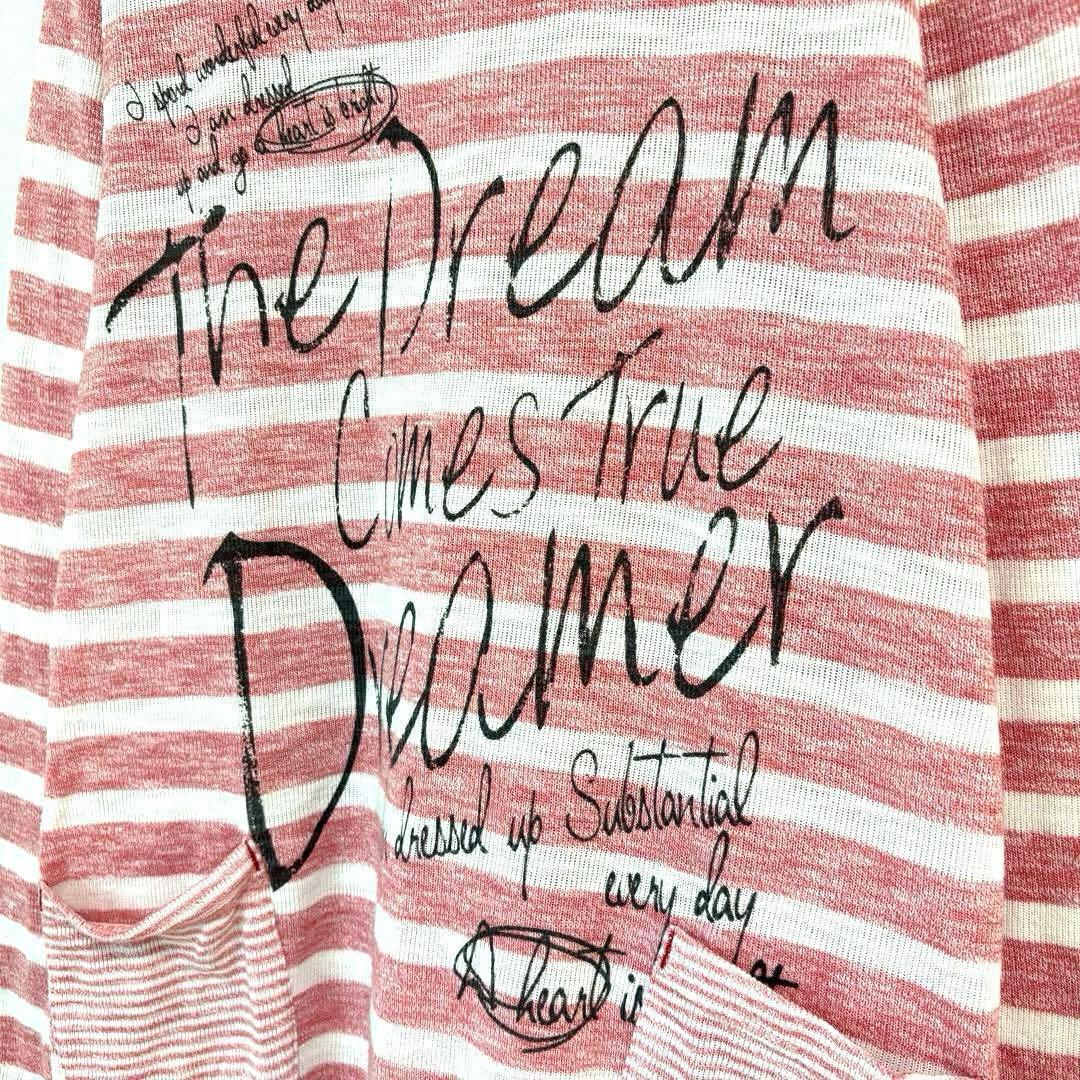 I spend wonderful every day
I an dressed
up and go a heart is a right
The Dream
Comes True
Dreamer
dressed up Substantial
every day
A heart is